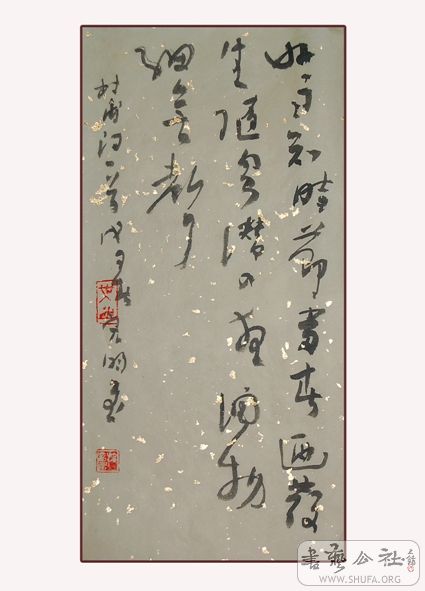 好雨知時節當春迺發
生隨風潛入夜潤物
細無聲
杜甫詩一首戊子 明書
書藝公社
WWW.SHUFA.ORG